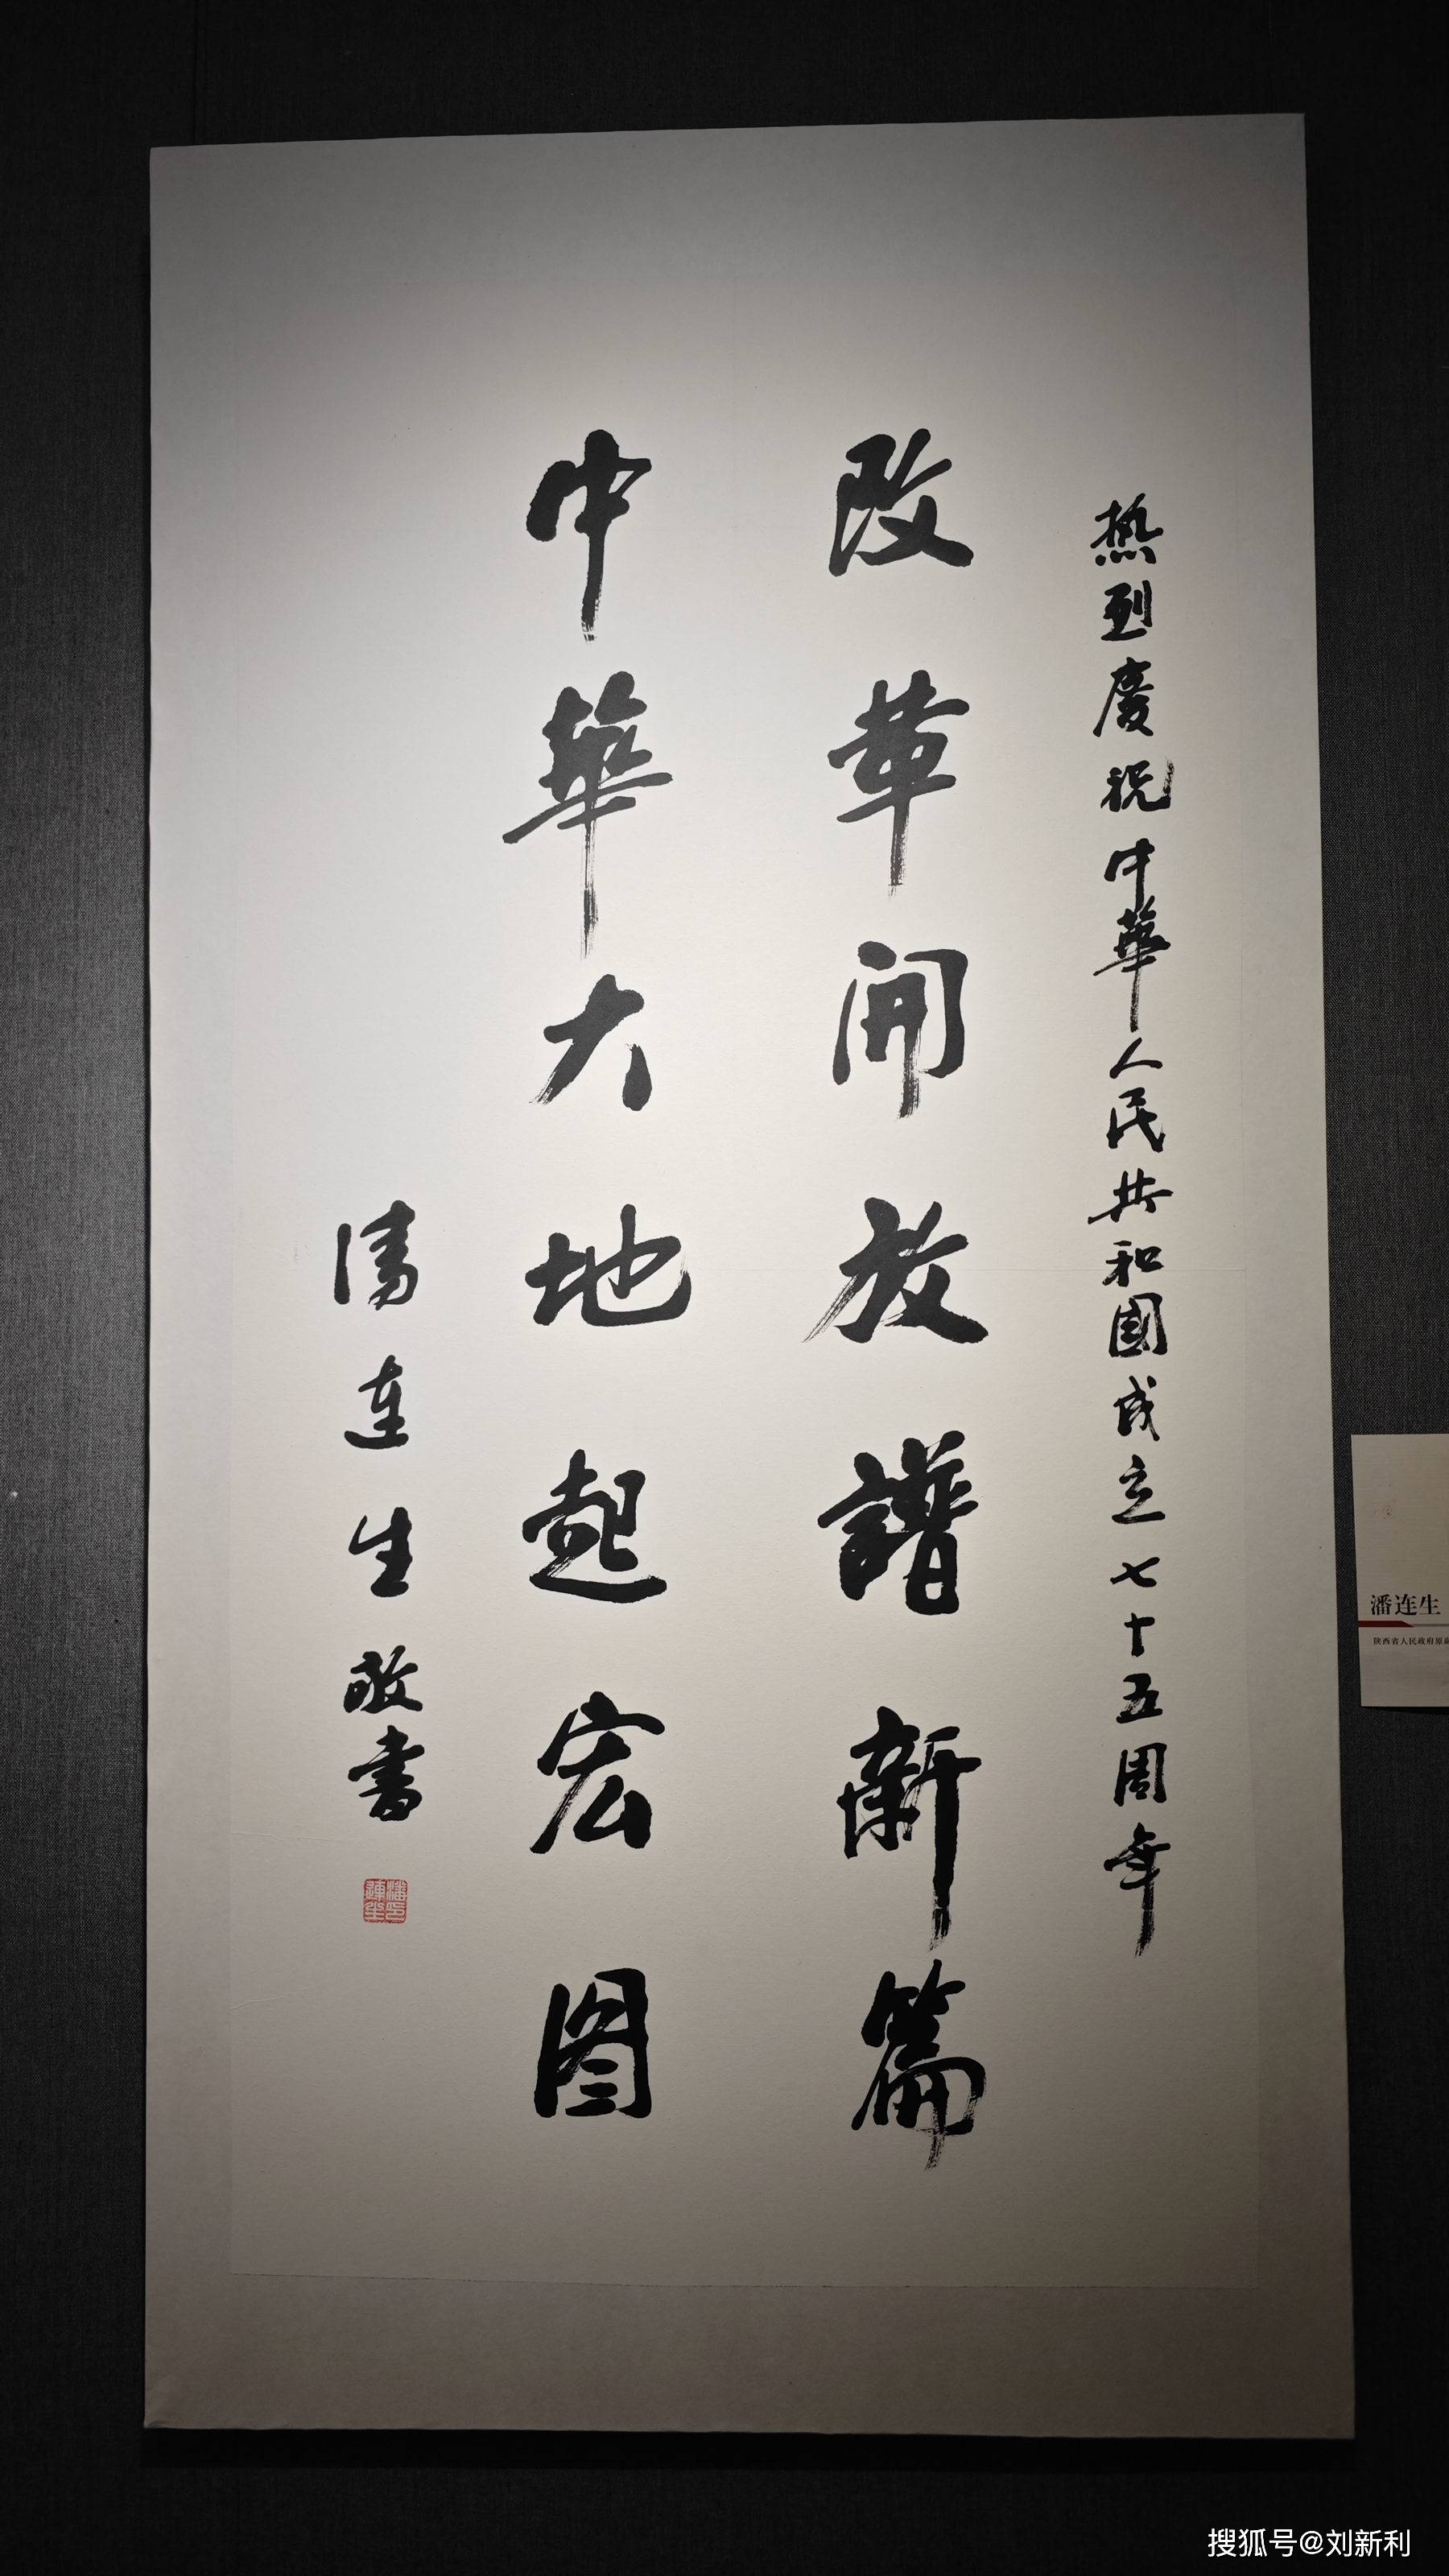 热烈慶祝中華人民共和國成立七十五周年
改革開放譜新篇
中華大地起宏图
潘连生敬書
潘印連生
潘连生
陕西省人民政府原
搜狐号@刘新利